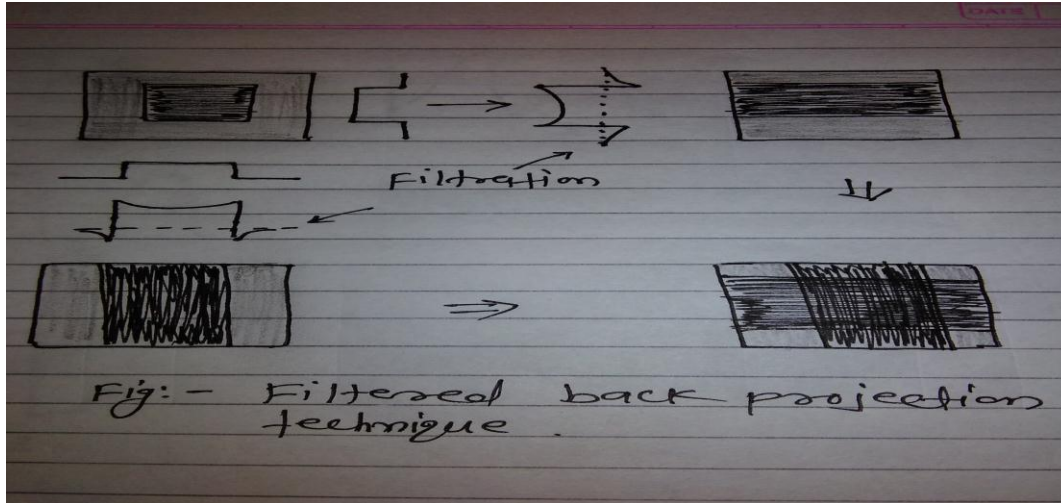 DATE
Filtration
Fig:- Filtered back projection
technique.